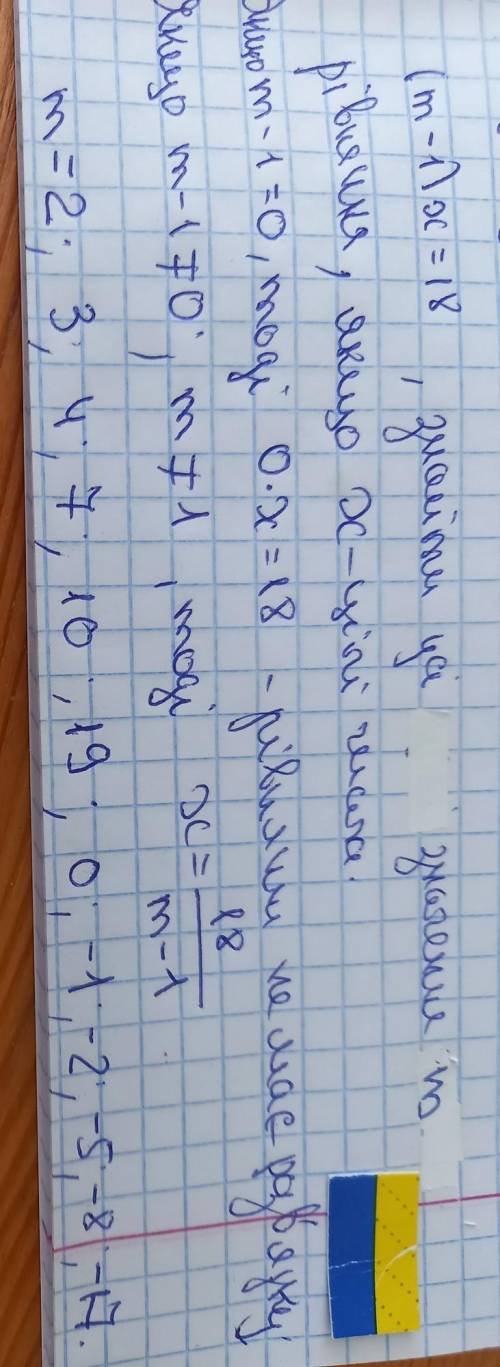 (m-1)x=18, знайти ці значення m
рівняння, якщо x-цілі числа.
Якщо m-1=0, тоді 0·x=18 - рівняння не має розв'язку
Якщо m-1≠0; m≠1, тоді x=18/(m-1)
m=2; 3; 4; 7; 10; 19; 0; -1; -2; -5; -8; -17.